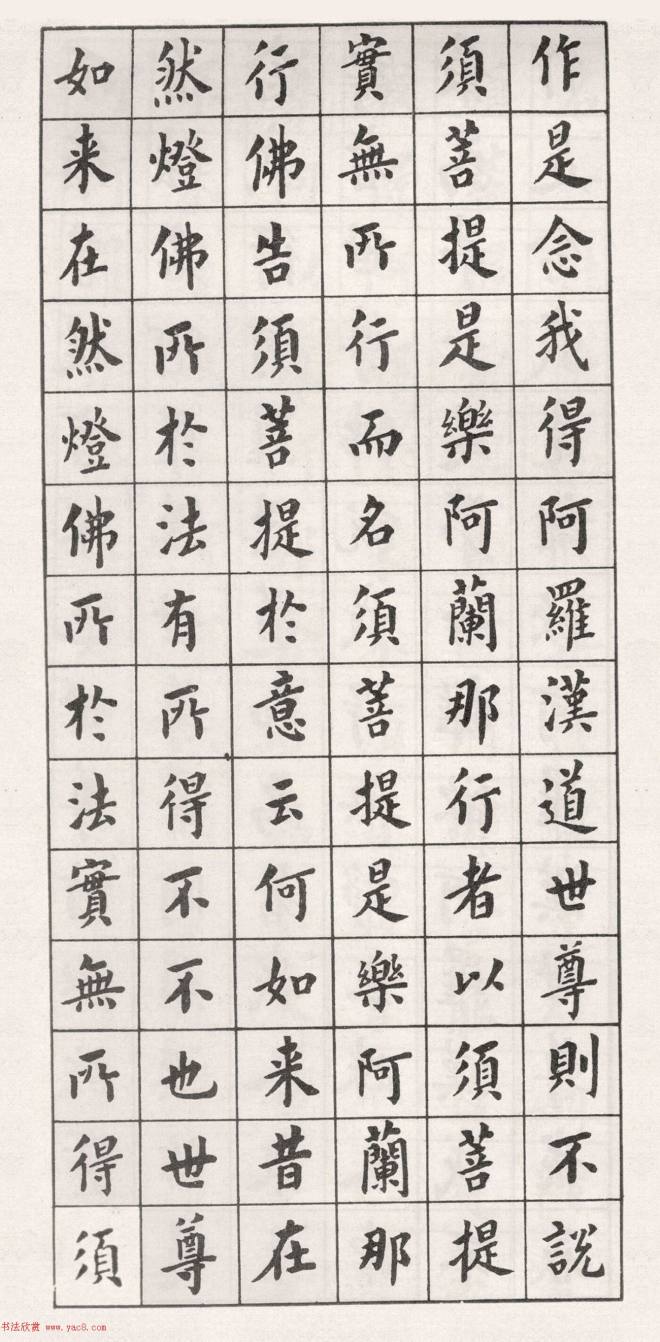 作是念我得阿羅漢道世尊則不說
須菩提是樂阿蘭那行者以須菩提
實無所行而名須菩提是樂阿蘭那
行佛告須菩提於意云何如来昔在
然燈佛所於法有所得不不也世尊
如来在然燈佛所於法實無所得須
书法欣赏 www.yac8.com